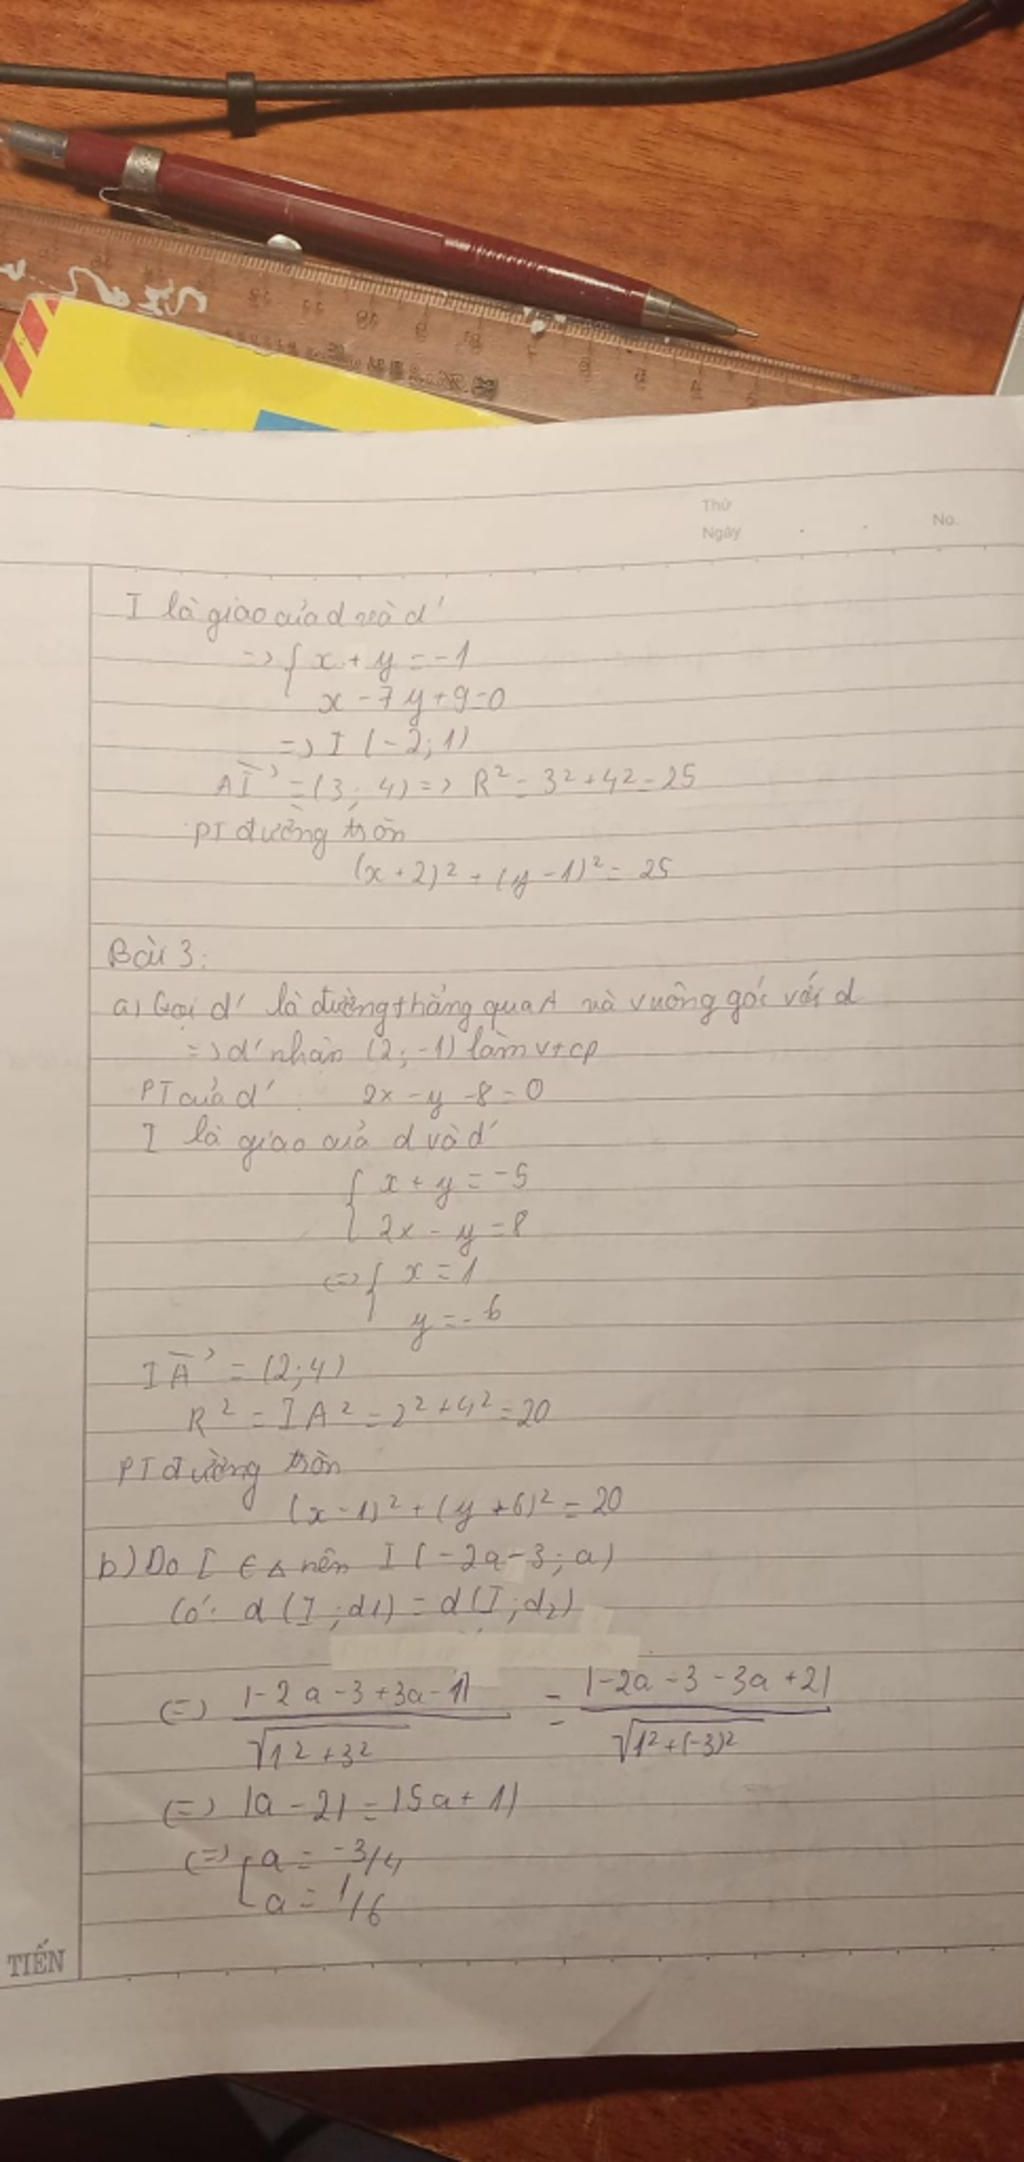 Thứ
Ngày No.
I là giao của d và d'
=> { x + y = -1
x - 7y + 9 = 0
=> I (-2; 1)
AI→ = (3; 4) => R² = 3² + 4² = 25
PT đường tròn
(x + 2)² + (y - 1)² = 25
Bài 3:
a) Gọi d' là đường thẳng qua A và vuông góc với d
=> d' nhận (2; -1) làm vtcp
PT của d': 2x - y - 8 = 0
I là giao của d và d'
{ x + y = -5
2x - y = 8
<=> { x = 1
y = -6
IA→ = (2; 4)
R² = IA² = 2² + 4² = 20
PT đường tròn
(x - 1)² + (y + 6)² = 20
b) Do I ∈ Δ nên I (-2a - 3; a)
Có: d (I; d1) = d (I; d2)
<=> |-2a - 3 + 3a - 1| / √1² + 3² = |-2a - 3 - 3a + 2| / √1² + (-3)²
<=> |a - 2| = |5a + 1|
<=> [ a = -3/4
a = 1/6
TIẾN